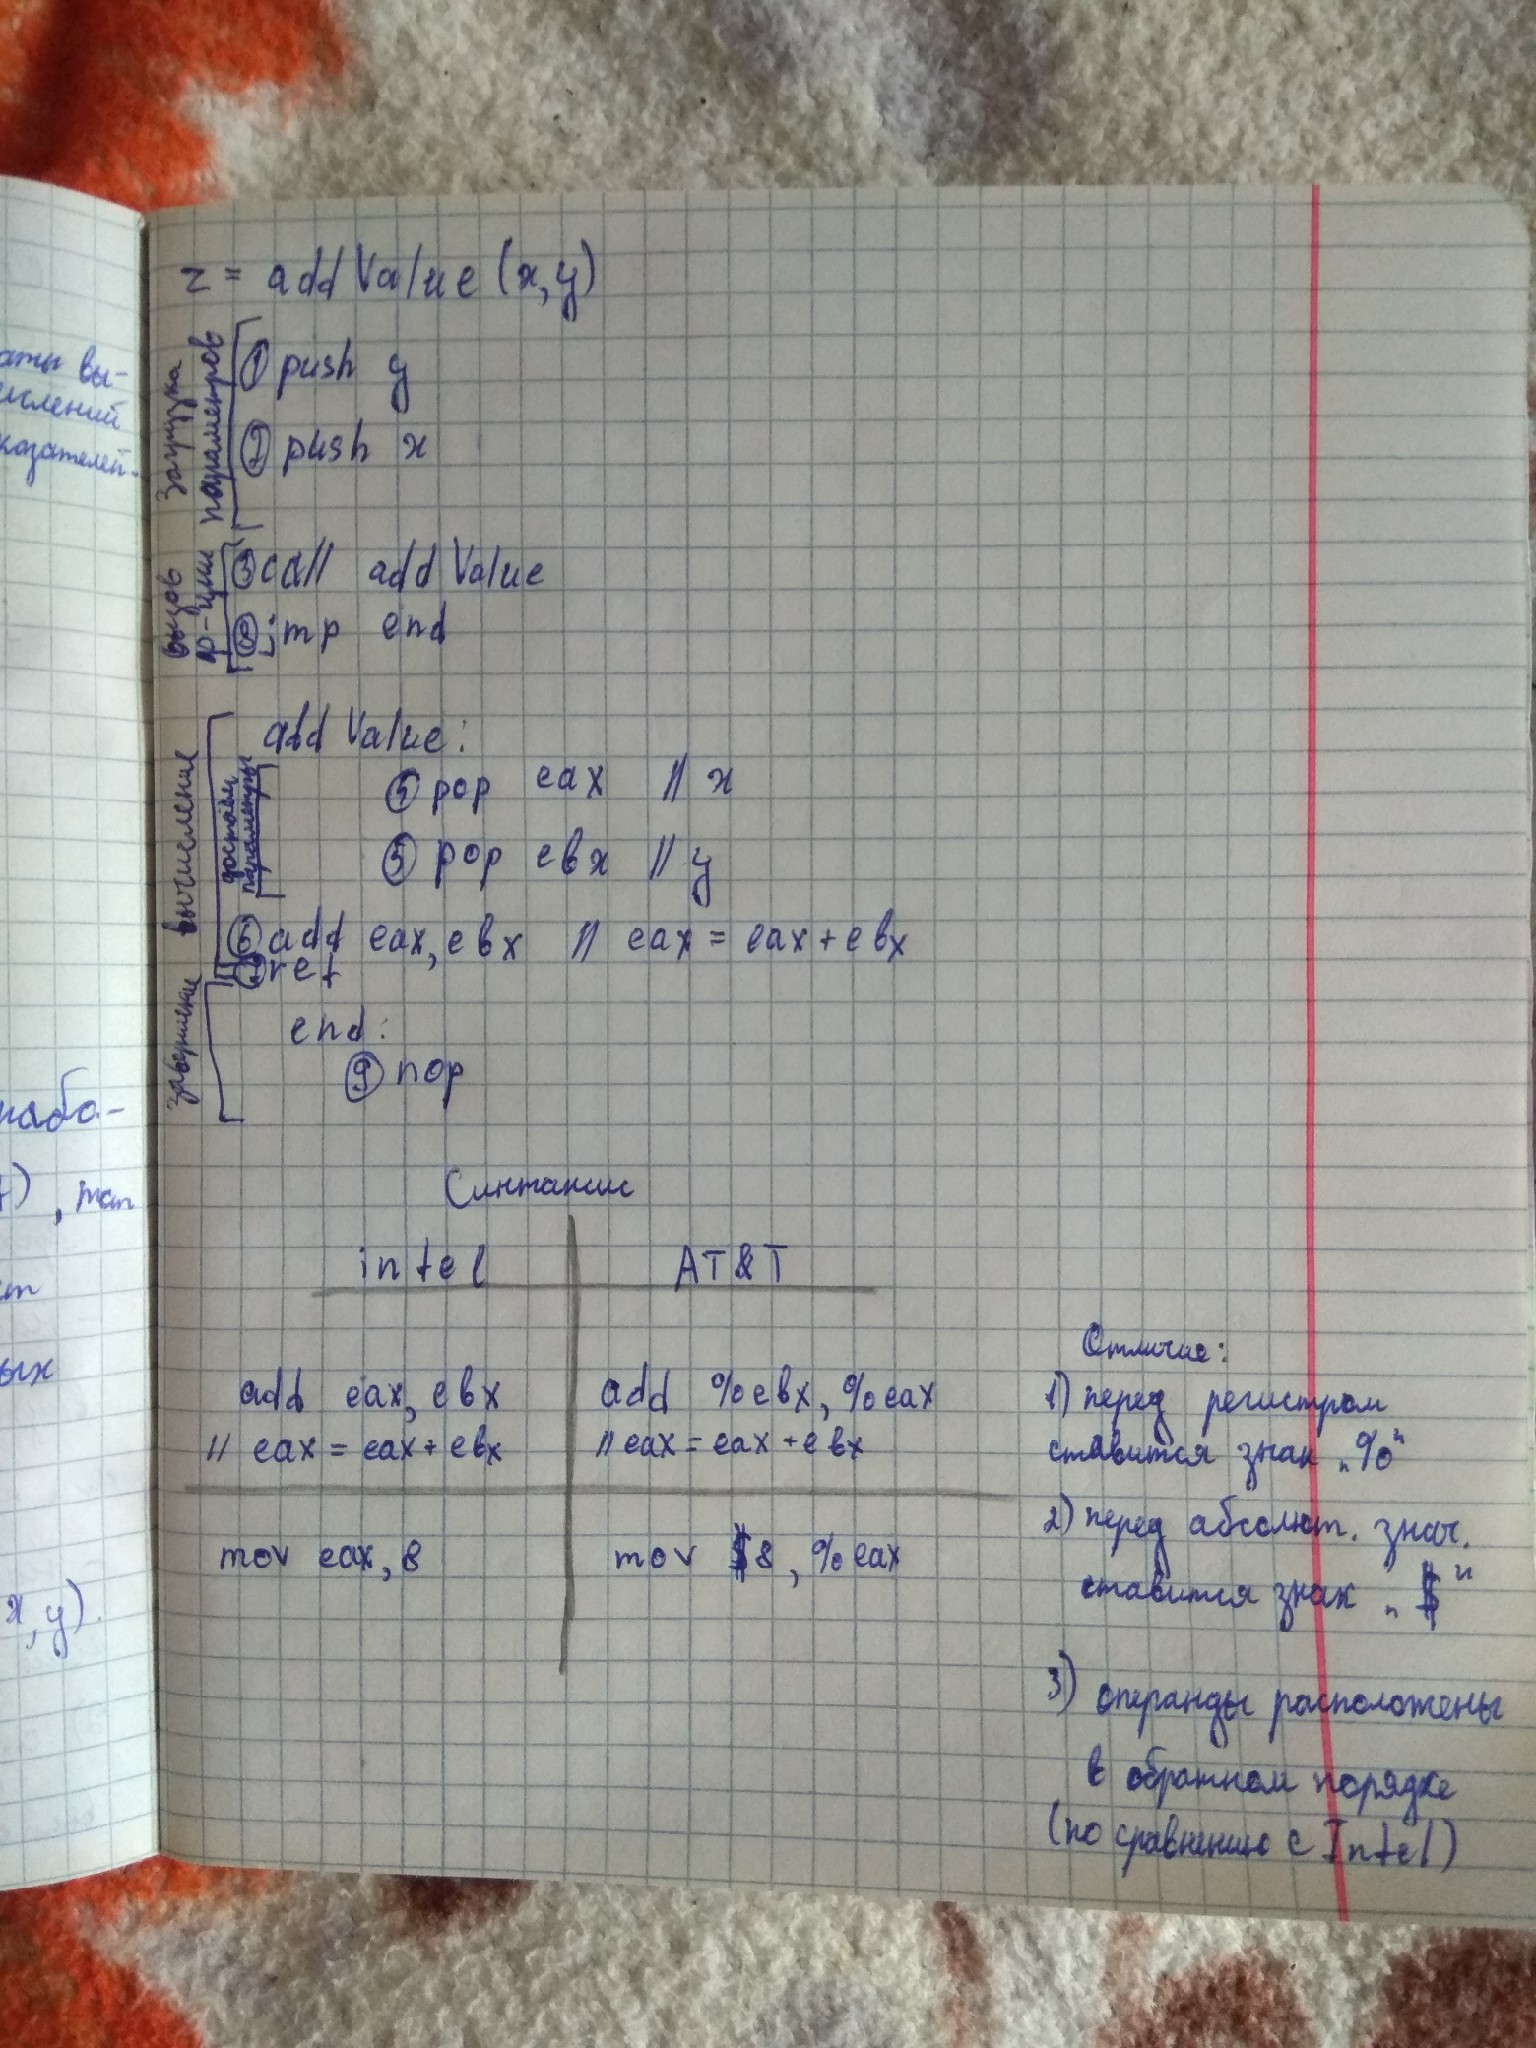 аты вы-
ислений
казателей.
рабо-
x, y)
z = addValue (x, y)
Загрузка
параметров
① push y
② push x
вызов
ф-ции
③ call addValue
⑧ jmp end
вычисление
addValue:
достаём
параметры
⑤ pop eax // x
⑤ pop ebx // y
⑥ add eax, ebx // eax = eax + ebx
ret
завершение
end:
⑨ nop
Синтаксис
intel AT&T
add eax, ebx add %ebx, %eax
// eax = eax + ebx // eax = eax + ebx
mov eax, 8 mov $8, %eax
Отличие:
1) перед регистром
ставится знак „%"
2) перед абсолют. знач.
ставится знак „$"
3) операнды расположены
в обратном порядке
(по сравнению с Intel)